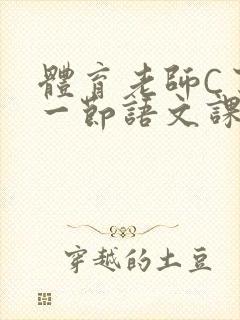 體育老師C
一節語文課
穿越的土豆